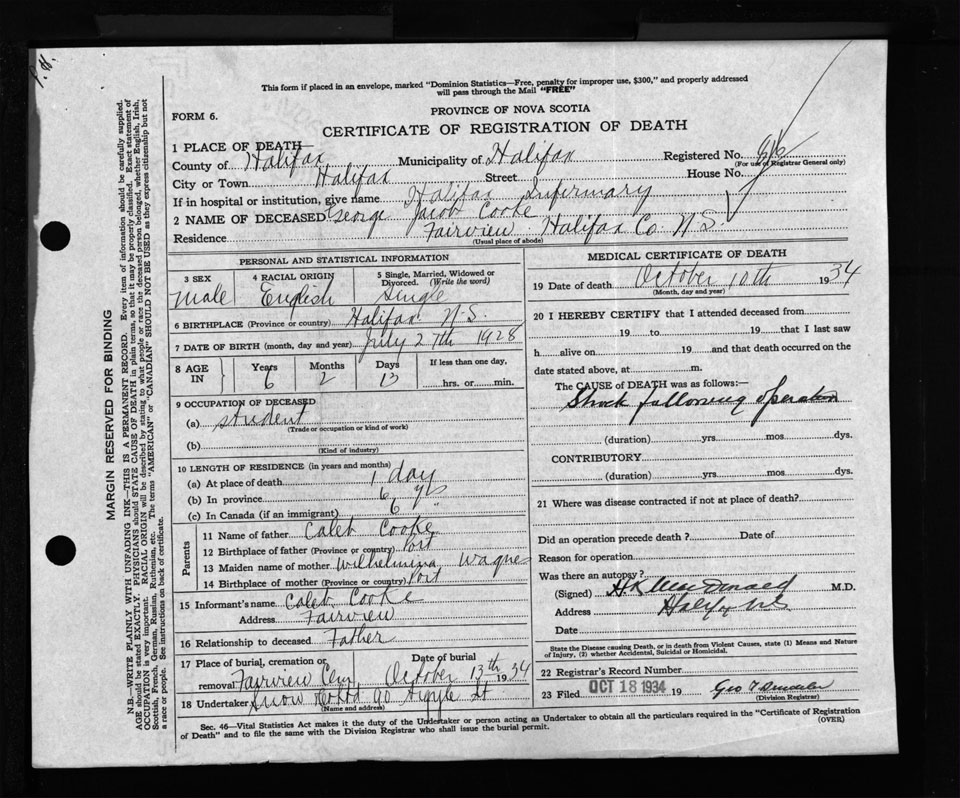 This form if placed in an envelope, marked "Dominion Statistics—Free, penalty for improper use, $300," and properly addressed
will pass through the Mail "FREE"
PROVINCE OF NOVA SCOTIA
FORM 6.
CERTIFICATE OF REGISTRATION OF DEATH
1 PLACE OF DEATH—
County of Halifax Municipality of Halifax Registered No.
(For use of Registrar General only)
City or Town Halifax Street House No.
If in hospital or institution, give name Halifax Infirmary
2 NAME OF DECEASED George Jacob Cooke
Residence Fairview Halifax Co. N.S.
(Usual place of abode)
PERSONAL AND STATISTICAL INFORMATION
3 SEX 4 RACIAL ORIGIN 5 Single, Married, Widowed or
Divorced. (Write the word)
Male English Single
6 BIRTHPLACE (Province or country) Halifax N.S.
7 DATE OF BIRTH (month, day and year) July 27th 1928
8 AGE IN Years Months Days If less than one day,
6 2 13 hrs. or min.
9 OCCUPATION OF DECEASED
(a) Student
(Trade or occupation or kind of work)
(b)
(Kind of industry)
10 LENGTH OF RESIDENCE (in years and months)
(a) At place of death 1 day
(b) In province 6 yrs
(c) In Canada (if an immigrant) 6 "
Parents
11 Name of father Caleb Cooke
12 Birthplace of father (Province or country)
13 Maiden name of mother Wilhelmina
14 Birthplace of mother (Province or country)
15 Informant's name Caleb Cooke
Address Fairview
16 Relationship to deceased Father
17 Place of burial, cremation or Date of burial
removal Fairview Cem. October 13th 1934
18 Undertaker Snow 90 Argyle St
(Name and address)
MEDICAL CERTIFICATE OF DEATH
19 Date of death October 10th 1934
(Month, day and year)
20 I HEREBY CERTIFY that I attended deceased from
19 to 19 that I last saw
h alive on 19 and that death occurred on the
date stated above, at m.
The CAUSE OF DEATH was as follows:—
Shock following operation
(duration) yrs mos dys.
CONTRIBUTORY
(duration) yrs mos dys.
21 Where was disease contracted if not at place of death?
Did an operation precede death? Date of
Reason for operation
Was there an autopsy?
(Signed) H.K. MacDonald M.D.
Address Halifax N.S.
Date
State the Disease causing Death, or in death from Violent Causes, state (1) Means and Nature
of Injury, (2) whether Accidental, Suicidal or Homicidal.
22 Registrar's Record Number
23 Filed OCT 18 1934 19 Geo
(Division Registrar)
Sec. 46—Vital Statistics Act makes it the duty of the Undertaker or person acting as Undertaker to obtain all the particulars required in the "Certificate of Registration
of Death" and to file the same with the Division Registrar who shall issue the burial permit.
(OVER)
MARGIN RESERVED FOR BINDING
N.B.—WRITE PLAINLY WITH UNFADING INK—THIS IS A PERMANENT RECORD. Every item of information should be carefully supplied.
AGE should be stated EXACTLY. PHYSICIANS should STATE CAUSE OF DEATH in plain terms, so that it may be properly classified. Exact statement of
OCCUPATION is very important. RACIAL ORIGIN will be described by stating to what people or race the deceased person belonged, whether English, Irish,
Scottish, French, German, Russian, Ruthenian, etc. The terms "AMERICAN" or "CANADIAN" SHOULD NOT BE USED as they express citizenship but not
a race or people. See instructions on back of certificate.